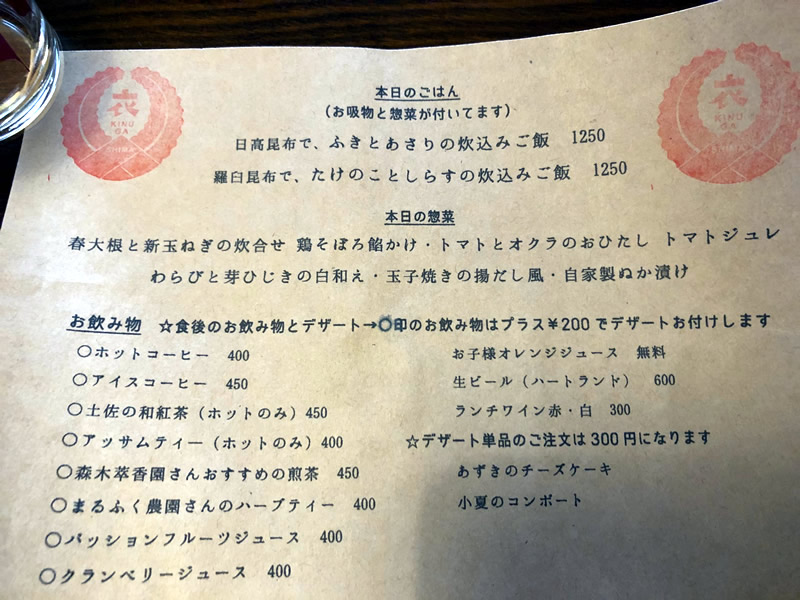 衣
KINU
GA
衣
KINU
GA
本日のごはん
(お吸物と惣菜が付いてます)
日高昆布で、ふきとあさりの炊込みご飯 1250
羅臼昆布で、たけのことしらすの炊込みご飯 1250
本日の惣菜
春大根と新玉ねぎの炊合せ 鶏そぼろ餡かけ・トマトとオクラのおひたし トマトジュレ
わらびと芽ひじきの白和え・玉子焼きの揚だし風・自家製ぬか漬け
お飲み物 ☆食後のお飲み物とデザート→〇印のお飲み物はプラス¥200でデザートお付けします
〇ホットコーヒー 400
〇アイスコーヒー 450
〇土佐の和紅茶(ホットのみ) 450
〇アッサムティー(ホットのみ) 400
〇森木萃香園さんおすすめの煎茶 450
〇まるふく農園さんのハーブティー 400
〇パッションフルーツジュース 400
〇クランベリージュース 400
お子様オレンジジュース 無料
生ビール(ハートランド) 600
ランチワイン赤・白 300
☆デザート単品のご注文は300円になります
あずきのチーズケーキ
小夏のコンポート